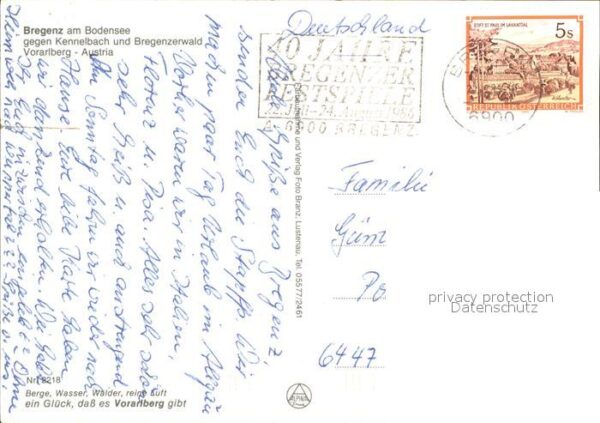 Bregenz am Bodensee
gegen Kennelbach und Bregenzerwald
Vorarlberg - Austria
Deutschland
40 JAHRE
BREGENZER
FESTSPIELE
6900 BREGENZ
STIFT ST. PAUL IM LAVANTTAL
5s
REPUBLIK ÖSTERREICH
6900
Viele Grüße aus Bregenz,
senden Euch die Wir
machen paar Tag Urlaub im Allgäu
Vorher waren wir in Italien,
Florenz u. Pisa. Alles sehr schön
sehr heiß u. auch anstrengend
Am Sonntag fahren wir wieder nach
Hause. Eure liebe Karte haben
wir dankend erhalten. Wir
Ihr Euch inzwischen
und Verlag Foto Branz, Lustenau, Tel. 05577/2461
Familie
Güm
Po
6447
privacy protection
Datenschutz
Nr. 8218
Berge, Wasser, Wälder, reine Luft
ein Glück, daß es Vorarlberg gibt